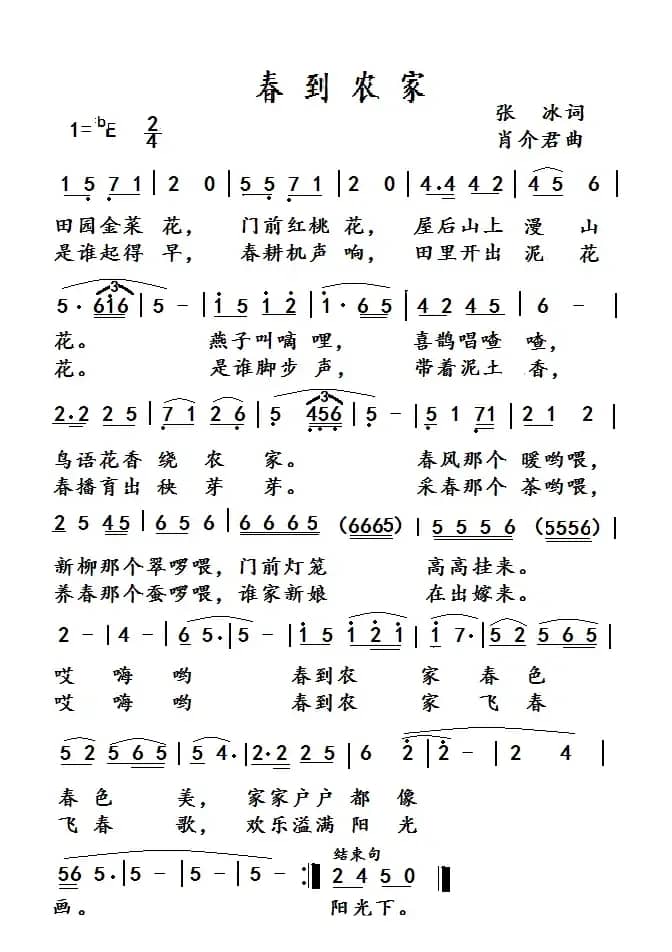 春到农家
1=♭E 2/4
张 冰词
肖介君曲
1 5 7 1 | 2 0 | 5 5 7 1 | 2 0 | 4. 4 4 2 | 4 5 6 |
田园金菜 花， 门前红桃 花， 屋后山上 漫 山
是谁起得 早， 春耕机声 响， 田里开出 泥 花
5 · 6i6 | 5 - | i 5 i 2 | i · 6 5 | 4 2 4 5 | 6 - |
花。 燕子叫嘀 哩， 喜鹊唱喳 喳，
花。 是谁脚步 声， 带着泥土 香，
2. 2 2 5 | 7 1 2 6 | 5 456 | 5 - | 5 1 71 | 2 1 2 |
鸟语花香 绕 农 家。 春风那个 暖哟喂，
春播育出 秧 芽 芽。 采春那个 茶哟喂，
2 5 45 | 6 5 6 | 6 6 6 5 | (6665) | 5 5 5 6 | (5556) |
新柳那个翠啰喂，门前灯笼 高高挂来。
养春那个蚕啰喂，谁家新娘 在出嫁来。
2 - | 4 - | 6 5. | 5 - | i 5 | i 2 i | i 7. | 5 2 5 6 5 |
哎 嗨 哟 春到农 家 春 色
哎 嗨 哟 春到农 家 飞 春
5 2 5 6 5 | 5 4. | 2. 2 2 5 | 6 2 | 2 - | 2 4 |
春 色 美， 家家户户 都 像
飞 春 歌， 欢乐溢满 阳 光
结束句
56 5. | 5 - | 5 - | 5 - :‖ 2 4 5 0 ‖
画。 阳光下。